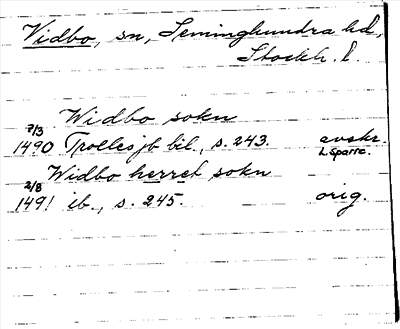 Vidbo, sn, Seminghundra hd,
Stockh. l.
Widbo sokn
7/3
1490 Trolles jb bil., s. 243. avskr.
L Sparre.
Widbo herret sokn
2/8
1491 ib., s. 245. orig.